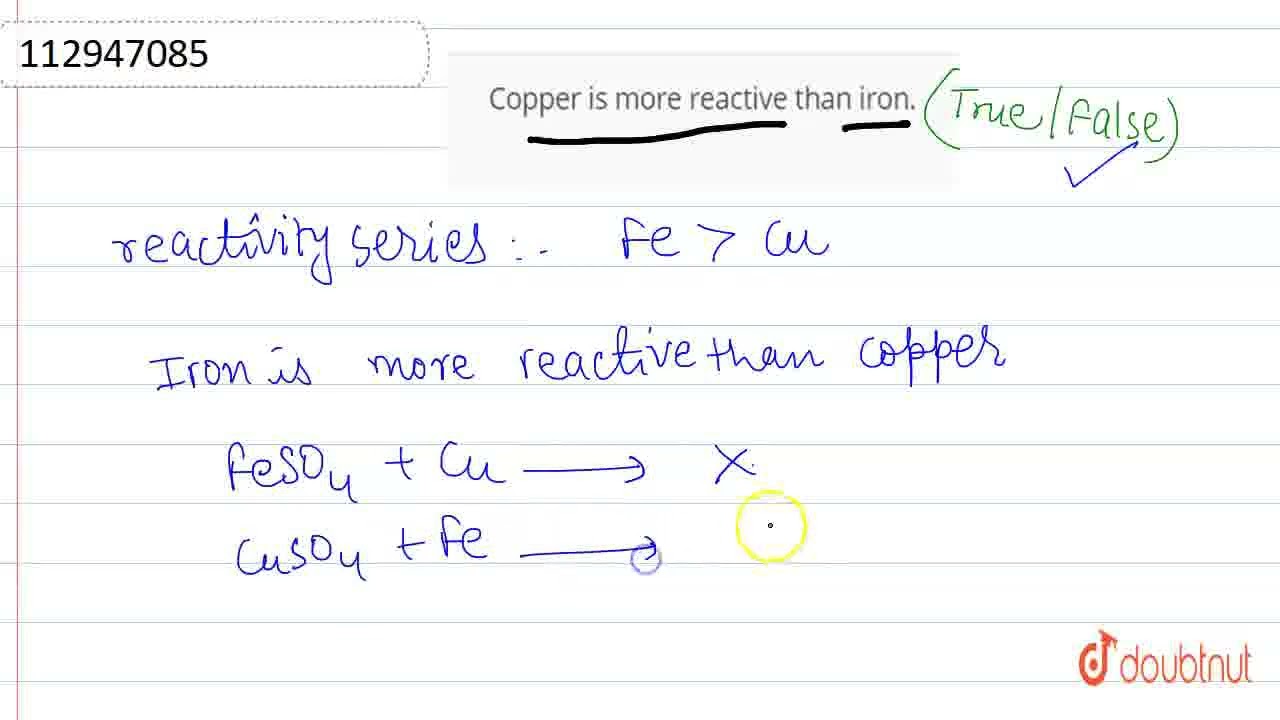 112947085
Copper is more reactive than iron. (True/False)
reactivity series :- Fe > Cu
Iron is more reactive than copper
FeSO4 + Cu ⟶ X
CuSO4 + Fe ⟶
doubtnut